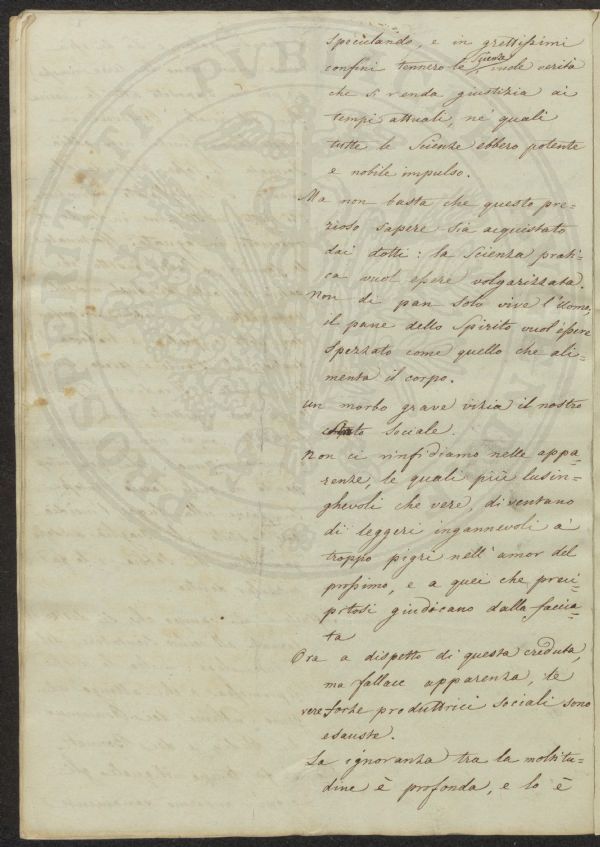 speculando, e in grettissimi
confini tennero le Scienze, mole verità
che si renda giustizia ai
tempi attuali, né quali
tutte le Scienze ebbero potente
e nobile impulso.
Ma non basta che questo pre=
zioso sapere sia acquistato
dai dotti: la Scienza prati=
ca vuol essere volgarizzata.
Non di pan solo vive l'Uomo,
il pane dello Spirito vuol essere
spezzato come quello che ali=
menta il corpo.
Un morbo grave vizia il nostro
stato sociale.
Non ci rinfidiamo nelle appa=
renze, le quali più lusin=
ghevoli che vere, diventano
di leggeri ingannevoli a'
troppo pigri nell'amor del
prossimo, e a quei che preci=
pitosi giudicano dalla faccia=
ta
Ora a dispetto di questa creduta,
ma fallace apparenza, le
vere forze produttrici sociali sono
esauste.
La ignoranza tra la moltitu=
dine è profonda, e lo è